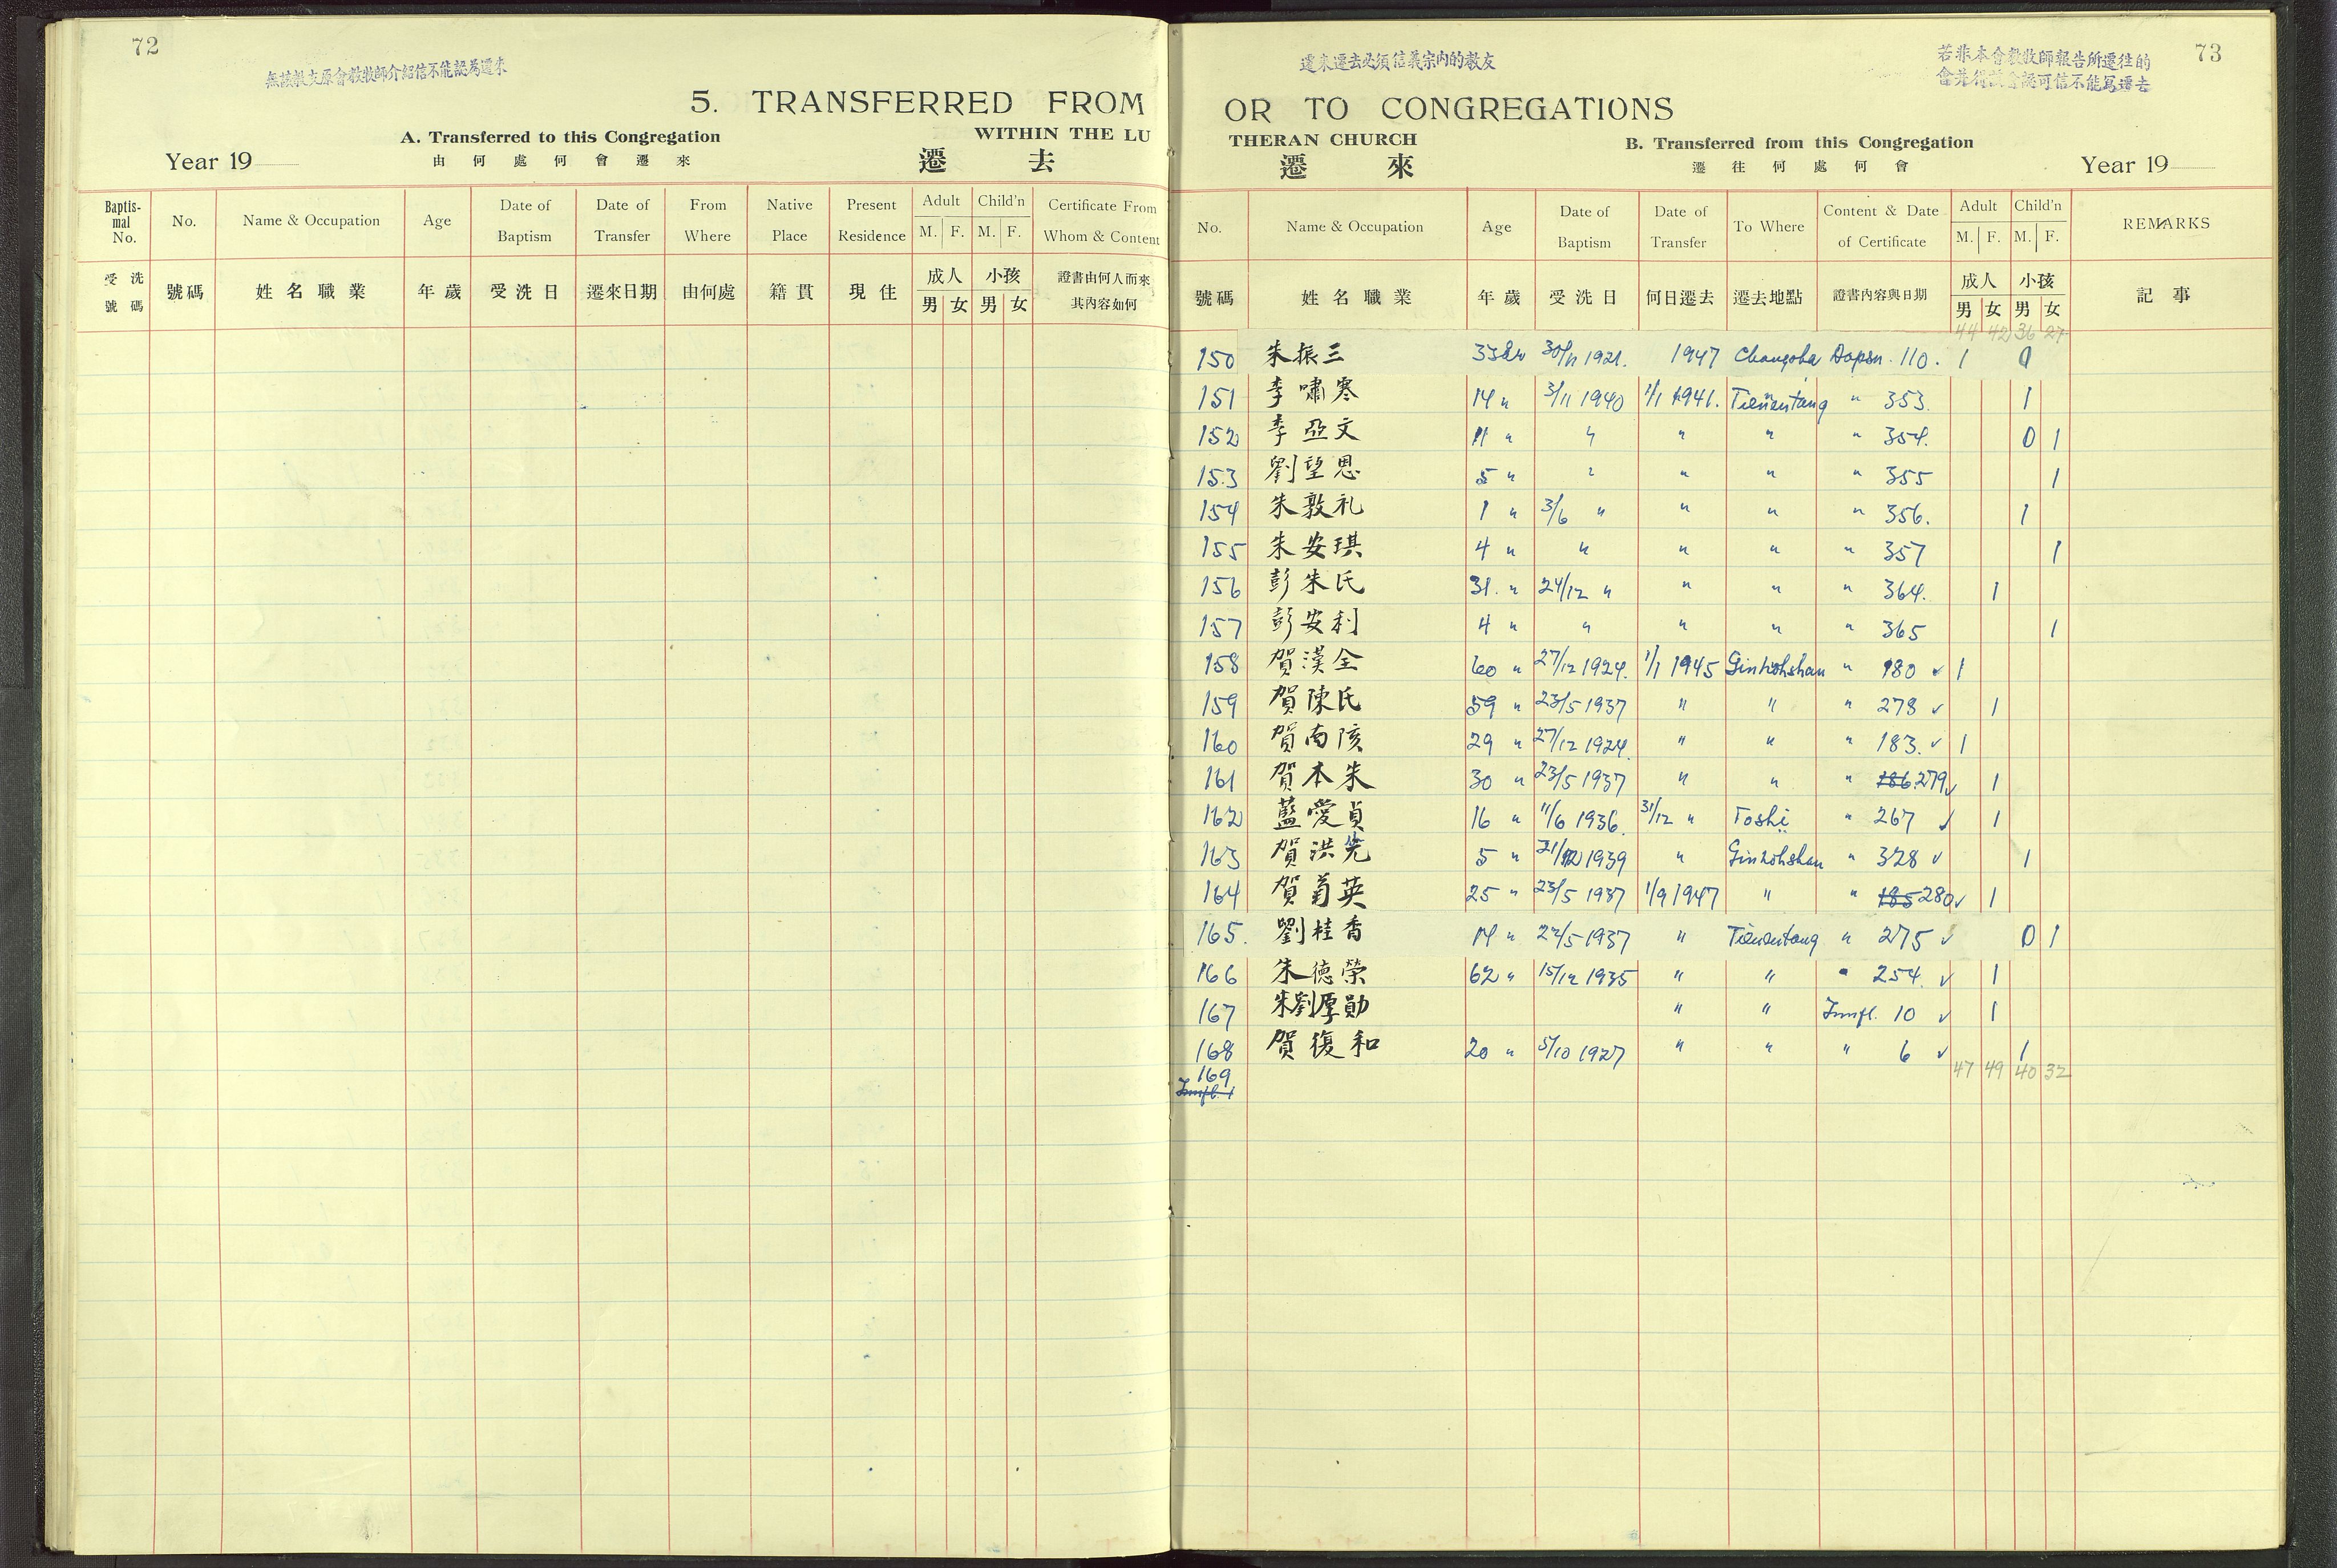 72
無該教友原會教牧師介紹信不能認為遷來
5. TRANSFERRED FROM
A. Transferred to this Congregation
WITHIN THE LU
Year 19
由何處何會遷來
遷 去
Baptismal No. No. Name & Occupation Age Date of Baptism Date of Transfer From Where Native Place Present Residence Adult M. F. Child'n M. F. Certificate From Whom & Content
受洗號碼 號碼 姓名職業 年歲 受洗日 遷來日期 由何處 籍貫 現住 成人 男 女 小孩 男 女 證書由何人而來其內容如何
遷來遷去必須信義宗內的教友
若非本會教牧師報告所遷往的
73
OR TO CONGREGATIONS
THERAN CHURCH
B. Transferred from this Congregation
遷 來
遷往何處何會
Year 19
No. Name & Occupation Age Date of Baptism Date of Transfer To Where Content & Date of Certificate Adult M. F. Child'n M. F. REMARKS
號碼 姓名職業 年歲 受洗日 何日遷去 遷去地點 證書內容與日期 成人 男 女 小孩 男 女 記事
44 42 36 27
150 朱振三 1921. 1947 110. 1 0
151 李嘯寒 14 " 3/11 1940 1/1 1941. Tienentang " 353. 1
152 李亞文 11 " " " " " 354. 0 1
153 劉望恩 5 " " " " " 355 1
154 朱敦礼 1 " 3/6 " " " " 356. 1
155 朱安琪 4 " " " " " 357 1
156 彭朱氏 31. " 24/12 " " " " 364. 1
157 彭安利 4 " " " " " 365 1
158 賀漢全 60 " 27/12 1924. 1/1 1945 Ginkohshan " 180 ✓ 1
159 賀陳氏 59 " 23/5 1937 " " " 278 ✓ 1
160 賀南陔 29 " 27/12 1924. " " " 183. ✓ 1
161 賀本朱 30 " 23/5 1937 " " " 186 279 ✓ 1
162 藍愛貞 16 " 11/6 1936. 31/12 " Toshi " 267 ✓ 1
163 賀洪 5 " 1939 " Ginkohshan " 328 ✓ 1
164 賀菊英 25 " 23/5 1937 1/9 1947 " " 185 280 ✓ 1
165. 劉桂香 14 " 22/5 1937 " Tienentang " 275 ✓ 0 1
166 朱德榮 62 " 15/12 1935 " " " 254. ✓ 1
167 朱劉厚勛 " " Innfl. 10 ✓ 1
168 賀復和 20 " 5/10 1927 " " " 6 ✓ 1
47 49 40 32
169
Innfl. 1